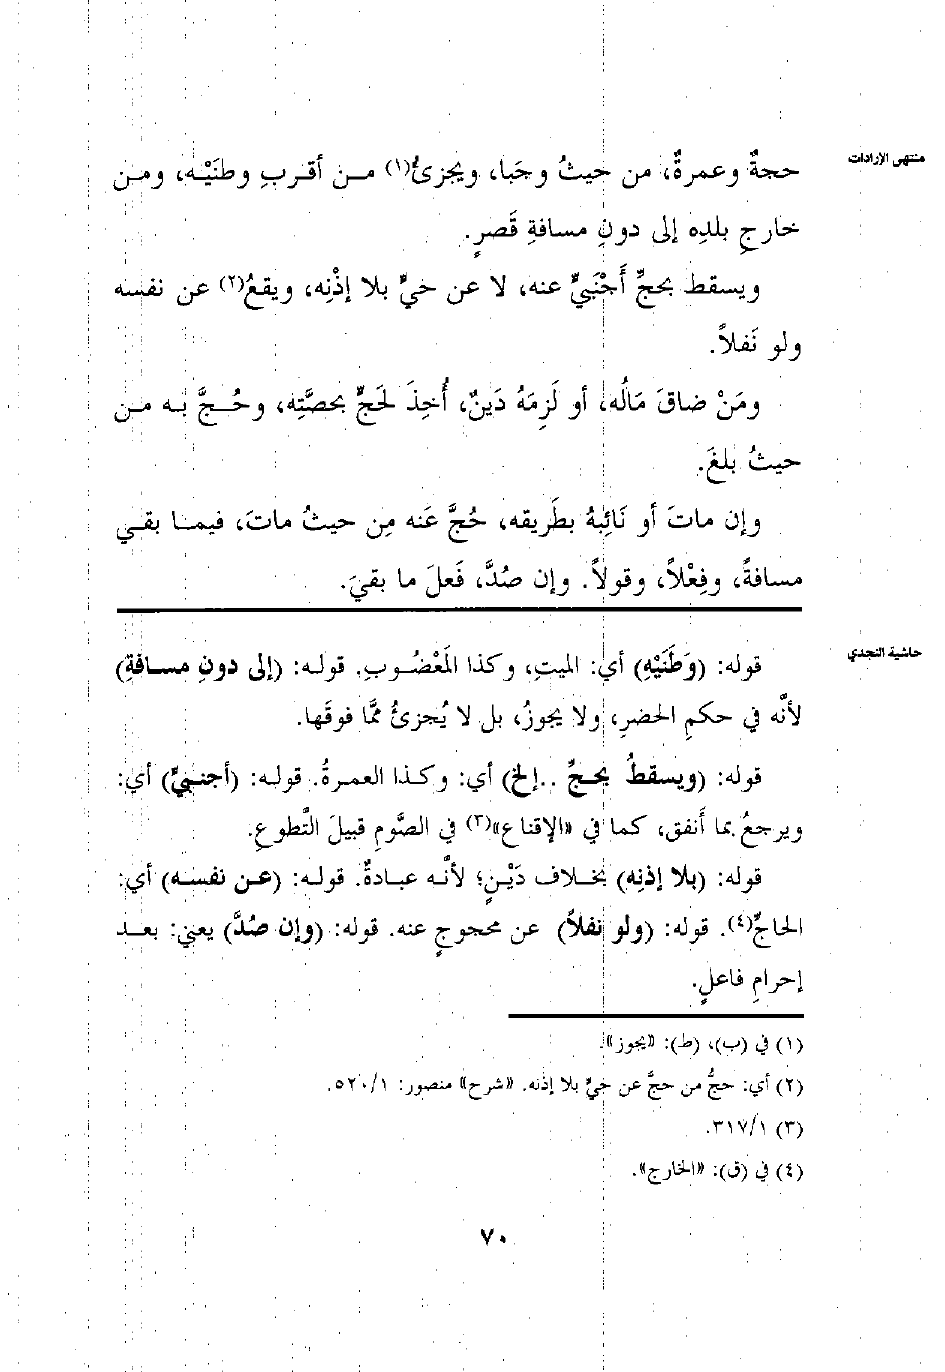 منتهى الإرادات
حجةٌ وعمرةٌ، من حيثُ وجَبا، ويجزئُ(١) من أقربِ وطنَيْه، ومن
خارجِ بلدِه إلى دونِ مسافةِ قَصرٍ.
ويسقط بحجِّ أَجْنَبيٍّ عنه، لا عن حيٍّ بلا إذْنِه، ويقعُ(٢) عن نفسه
ولو نَفلاً.
ومَنْ ضاقَ مَالُه، أو لَزِمَهُ دَينٌ، أُخِذَ لحَجٍّ بحصَّتِه، وحُجَّ به من
حيثُ بلغَ.
وإن ماتَ أو نَائِبُهُ بطَريقه، حُجَّ عَنه مِن حيثُ ماتَ، فيما بقي
مسافةً، وفِعْلاً، وقولاً. وإن صُدَّ، فَعلَ ما بقيَ.
حاشية النجدي
قوله: (وَطَنَيْهِ) أي: الميتِ، وكذا المَعْضُوبِ. قوله: (إلى دونِ مسافةِ)
لأنَّه في حكمِ الحضرِ، ولا يجوزُ، بل لا يُجزئُ ممَّا فوقَها.
قوله: (ويسقطُ بحجِّ ..إلخ) أي: وكذا العمرةُ. قوله: (أجنبيٍّ) أي:
ويرجعُ بما أَنفق، كما في «الإقناع»(٣) في الصَّومِ قبيلَ التَّطوعِ.
قوله: (بلا إذنِه) بخلاف دَيْنٍ؛ لأنَّه عبادةٌ. قوله: (عن نفسه) أي:
الحاجِّ(٤). قوله: (ولو نفلاً) عن محجوجٍ عنه. قوله: (وإن صُدَّ) يعني: بعد
إحرامِ فاعلٍ.
(١) في (ب)، (ط): «يجوز».
(٢) أي: حجُّ من حجَّ عن حيٍّ بلا إذنه. «شرح» منصور: ٥٢٠/١.
(٣) ٣١٧/١.
(٤) في (ق): «الخارج».
٧٠